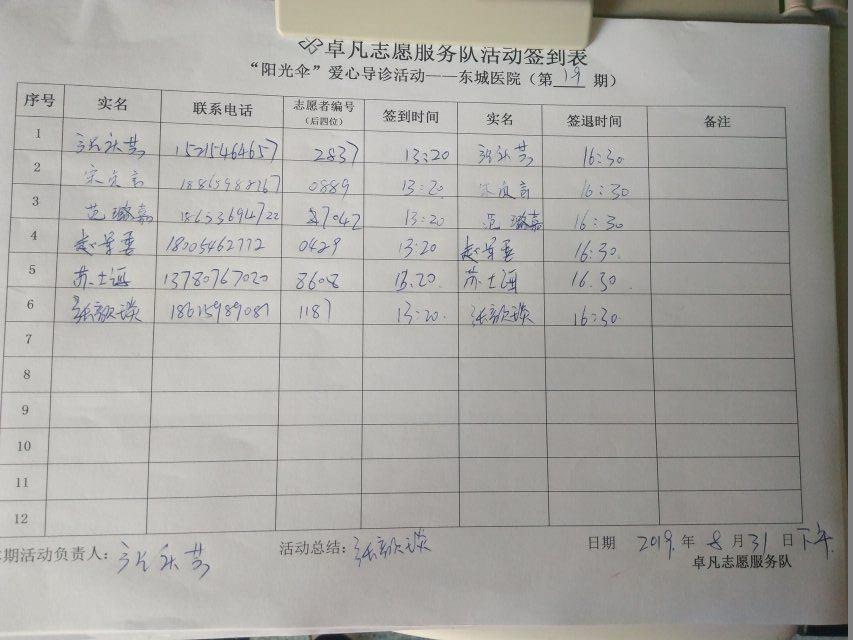 卓凡志愿服务队活动签到表
“阳光伞”爱心导诊活动——东城医院（第 期）
序号 实名 联系电话 志愿者编号（后四位） 签到时间 实名 签退时间 备注
1 15215464657 2837 13:20 16:30
2 0889 13:20 16:30
3 范璐嘉 18653694722 7042 13:20 范璐嘉 16:30
4 18005462772 0429 13:20 16:30
5 苏士涵 13780767020 8608 13.20 苏士涵 16.30
6 18615989087 1187 13:20 16:30
7
8
9
10
11
12
期活动负责人： 活动总结： 日期 2019. 年 8 月 31 日 下午
卓凡志愿服务队